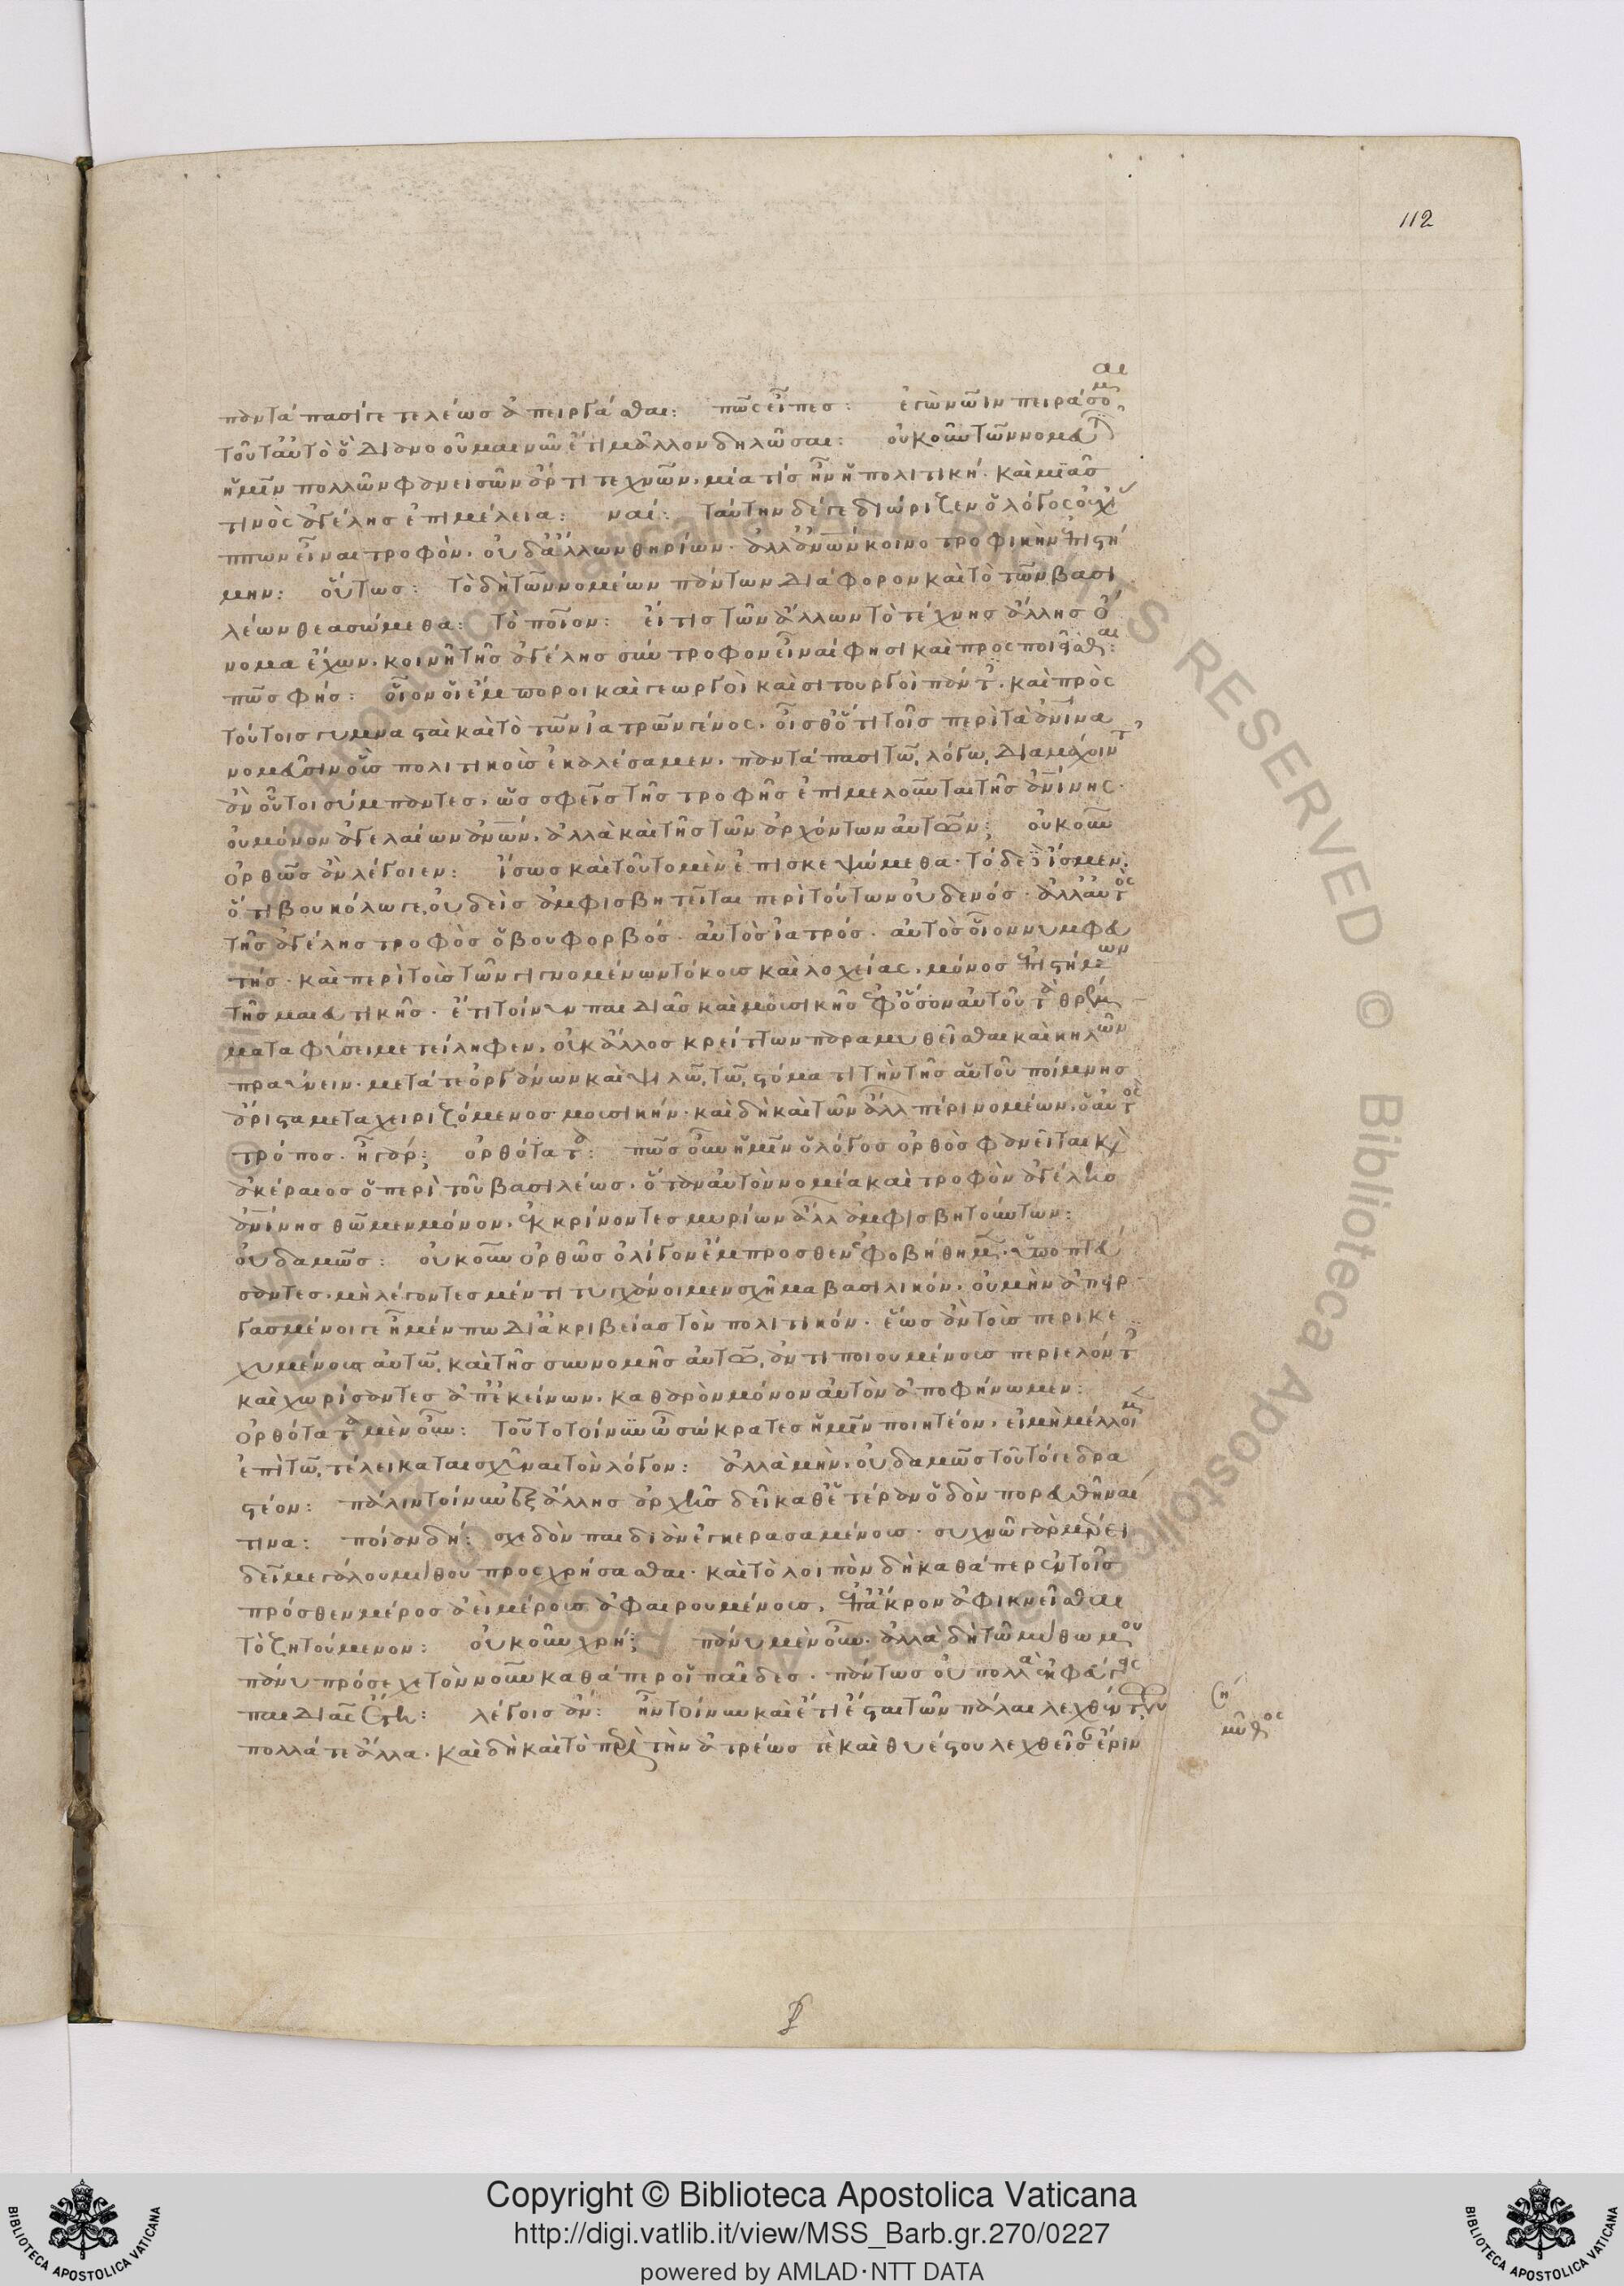 112
παντάπασί γε τελέως ἀπειργάσθαι: πῶς εἶπες: ἐγὼ νῶιν πειράσομαι
τοῦτ' αὐτὸ ὃ διανοούμαι νῦν ἔτι μᾶλλον δηλῶσαι: οὐκοῦν τῶν νομευτι
ἡμῖν πολλῶν φανεισῶν ἄρτι τεχνῶν, μία τίς ἦν ἡ πολιτική· καὶ μιᾶς
τινὸς ἀγέλης ἐπιμέλεια: ναί: ταύτην δέ γε διώριζεν ὁ λόγος οὐχ ἵπ
πων εἶναι τροφὸν, οὐδ' ἄλλων θηρίων· ἀλλ' ἀνων κοινοτροφικὴν ἐπιστή
μην: οὕτως: τὸ δὴ τῶν νομέων πάντων διάφορον καὶ τὸ τῶν βασι
λέων θεασώμεθα: τὸ ποῖον: εἴ τις τῶν ἄλλων τὸ τέχνης ἄλλης ὄ
νομα ἔχων, κοινῆ τῆς ἀγέλης σύντροφον εἶναί φησι καὶ προσποιεῖσθαι:
πῶς φής: οἷον οἱ ἔμποροι καὶ γεωργοὶ καὶ σιτουργοὶ πάντες, καὶ πρὸς
τούτοις γυμνασταὶ καὶ τὸ τῶν ἰατρῶν γένος, οἶσθ' ὅτι τοῖς περὶ τὰ ἀνινα
νομεῦσιν οὓς πολιτικοὺς ἐκαλέσαμεν, παντάπασι τῶ λόγω διαμάχοιντ'
ἂν οὗτοι σύμπαντες, ὡς σφεῖς τῆς τροφῆς ἐπιμελοῦνται τῆς ἀνινης·
οὐ μόνον ἀγελαίων ἀνων, ἀλλὰ καὶ τῆς τῶν ἀρχόντων αὐτῶν; οὐκοῦν
ὀρθῶς ἂν λέγοιεν: ἴσως καὶ τοῦτο μὲν ἐπισκεψώμεθα· τόδε ἴσμεν,
ὅτι βουκόλω γε οὐδεὶς ἀμφισβητεῖται περὶ τούτων οὐδενός· ἀλλ' αὐτὸς
τῆς ἀγέλης τροφὸς ὁ βουφορβός· αὐτὸς ἰατρός· αὐτὸς οἷον νυμφευ
τής· καὶ περὶ τοὺς τῶν γιγνομένων τόκους καὶ λοχείας, μόνος ἐπιστήμων
τῆς μαιευτικῆς· ἔτι τοίνυν παιδιᾶς καὶ μουσικῆς ἐφ' ὅσον αὐτοῦ τὰ θρέμ
ματα φύσει μετείληφεν, οὐκ ἄλλος κρείττων παραμυθεῖσθαι καὶ κηλῶν
πραΰνειν· μετά τε ὀργάνων καὶ ψιλῶ τῶ στόματι τὴν τῆς αὑτοῦ ποίμνης
ἄριστα μεταχειριζόμενος μουσικήν· καὶ δὴ καὶ τῶν ἄλλων πέρι νομέων, ὁ αὐτὸς
τρόπος· ἦ γάρ; ὀρθότατα: πῶς οὖν ἡμῖν ὁ λόγος ὀρθὸς φανεῖται καὶ
ἀκέραιος ὁ περὶ τοῦ βασιλέως, ὅταν αὐτὸν νομέα καὶ τροφὸν ἀγέλης
ἀνινης θῶμεν μόνον, ἐκκρίνοντες μυρίων ἄλλων ἀμφισβητούντων:
οὐδαμῶς: οὐκοῦν ὀρθῶς ὀλίγον ἔμπροσθεν ἐφοβήθημεν, ὑποπτεύ
σαντες, μὴ λέγοντες μέν τι τυγχάνοιμεν σχῆμα βασιλικόν, οὐ μὴν ἀπειρ
γασμένοι γε ἦμέν πω δι' ἀκριβείας τὸν πολιτικόν· ἕως ἂν τοὺς περικε
χυμένους αὐτῶ καὶ τῆς συννομῆς αὐτῶ ἀντιποιουμένους περιελόντες
καὶ χωρίσαντες ἀπ' ἐκείνων, καθαρὸν μόνον αὐτὸν ἀποφήνωμεν:
ὀρθότατα μὲν οὖν: τοῦτο τοίνυν ὦ σώκρατες ἡμῖν ποιητέον, εἰ μὴ μέλλοιμεν
ἐπὶ τῶ τέλει καταισχῦναι τὸν λόγον: ἀλλὰ μὴν, οὐδαμῶς τοῦτό γε δρα
στέον: πάλιν τοίνυν ἐξ ἄλλης ἀρχῆς δεῖ καθ' ἑτέραν ὁδὸν πορευθῆναί
τινα: ποίαν δή: σχεδὸν παιδιὰν ἐγκερασαμένους· συχνῶ γὰρ μέρει
δεῖ μεγάλου μύθου προσχρήσασθαι· καὶ τὸ λοιπὸν δὴ καθάπερ ἐν τοῖς
πρόσθεν μέρος ἀεὶ μέρους ἀφαιρουμένους, ἐπ' ἄκρον ἀφικνεῖσθαι
τὸ ζητούμενον: οὐκοῦν χρή; πάνυ μὲν οὖν· ἀλλὰ δὴ τῶ μύθω μου
πάνυ πρόσεχε τὸν νοῦν καθάπερ οἱ παῖδες· πάντως οὐ πολλὰ ἐκφεύγεις
παιδιὰς ἔτη: λέγοις ἄν: ἦν τοίνυν καὶ ἔτι ἔσται τῶν πάλαι λεχθέντων
πολλά τε ἄλλα· καὶ δὴ καὶ τὸ περὶ τὴν ἀτρέως τὲ καὶ θυέστου λεχθεῖσαν ἔριν
μῦθος
Copyright © Biblioteca Apostolica Vaticana
http://digi.vatlib.it/view/MSS_Barb.gr.270/0227
powered by AMLAD·NTT DATA
BIBLIOTECA APOSTOLICA VATICANA
BIBLIOTECA APOSTOLICA VATICANA